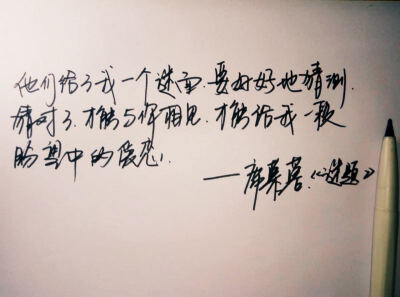 他们给了我一个谜面.要好好地猜测.
猜对了.才能与你相见.才能给我一段
盼望中的爱恋.
——席慕蓉.《谜题》